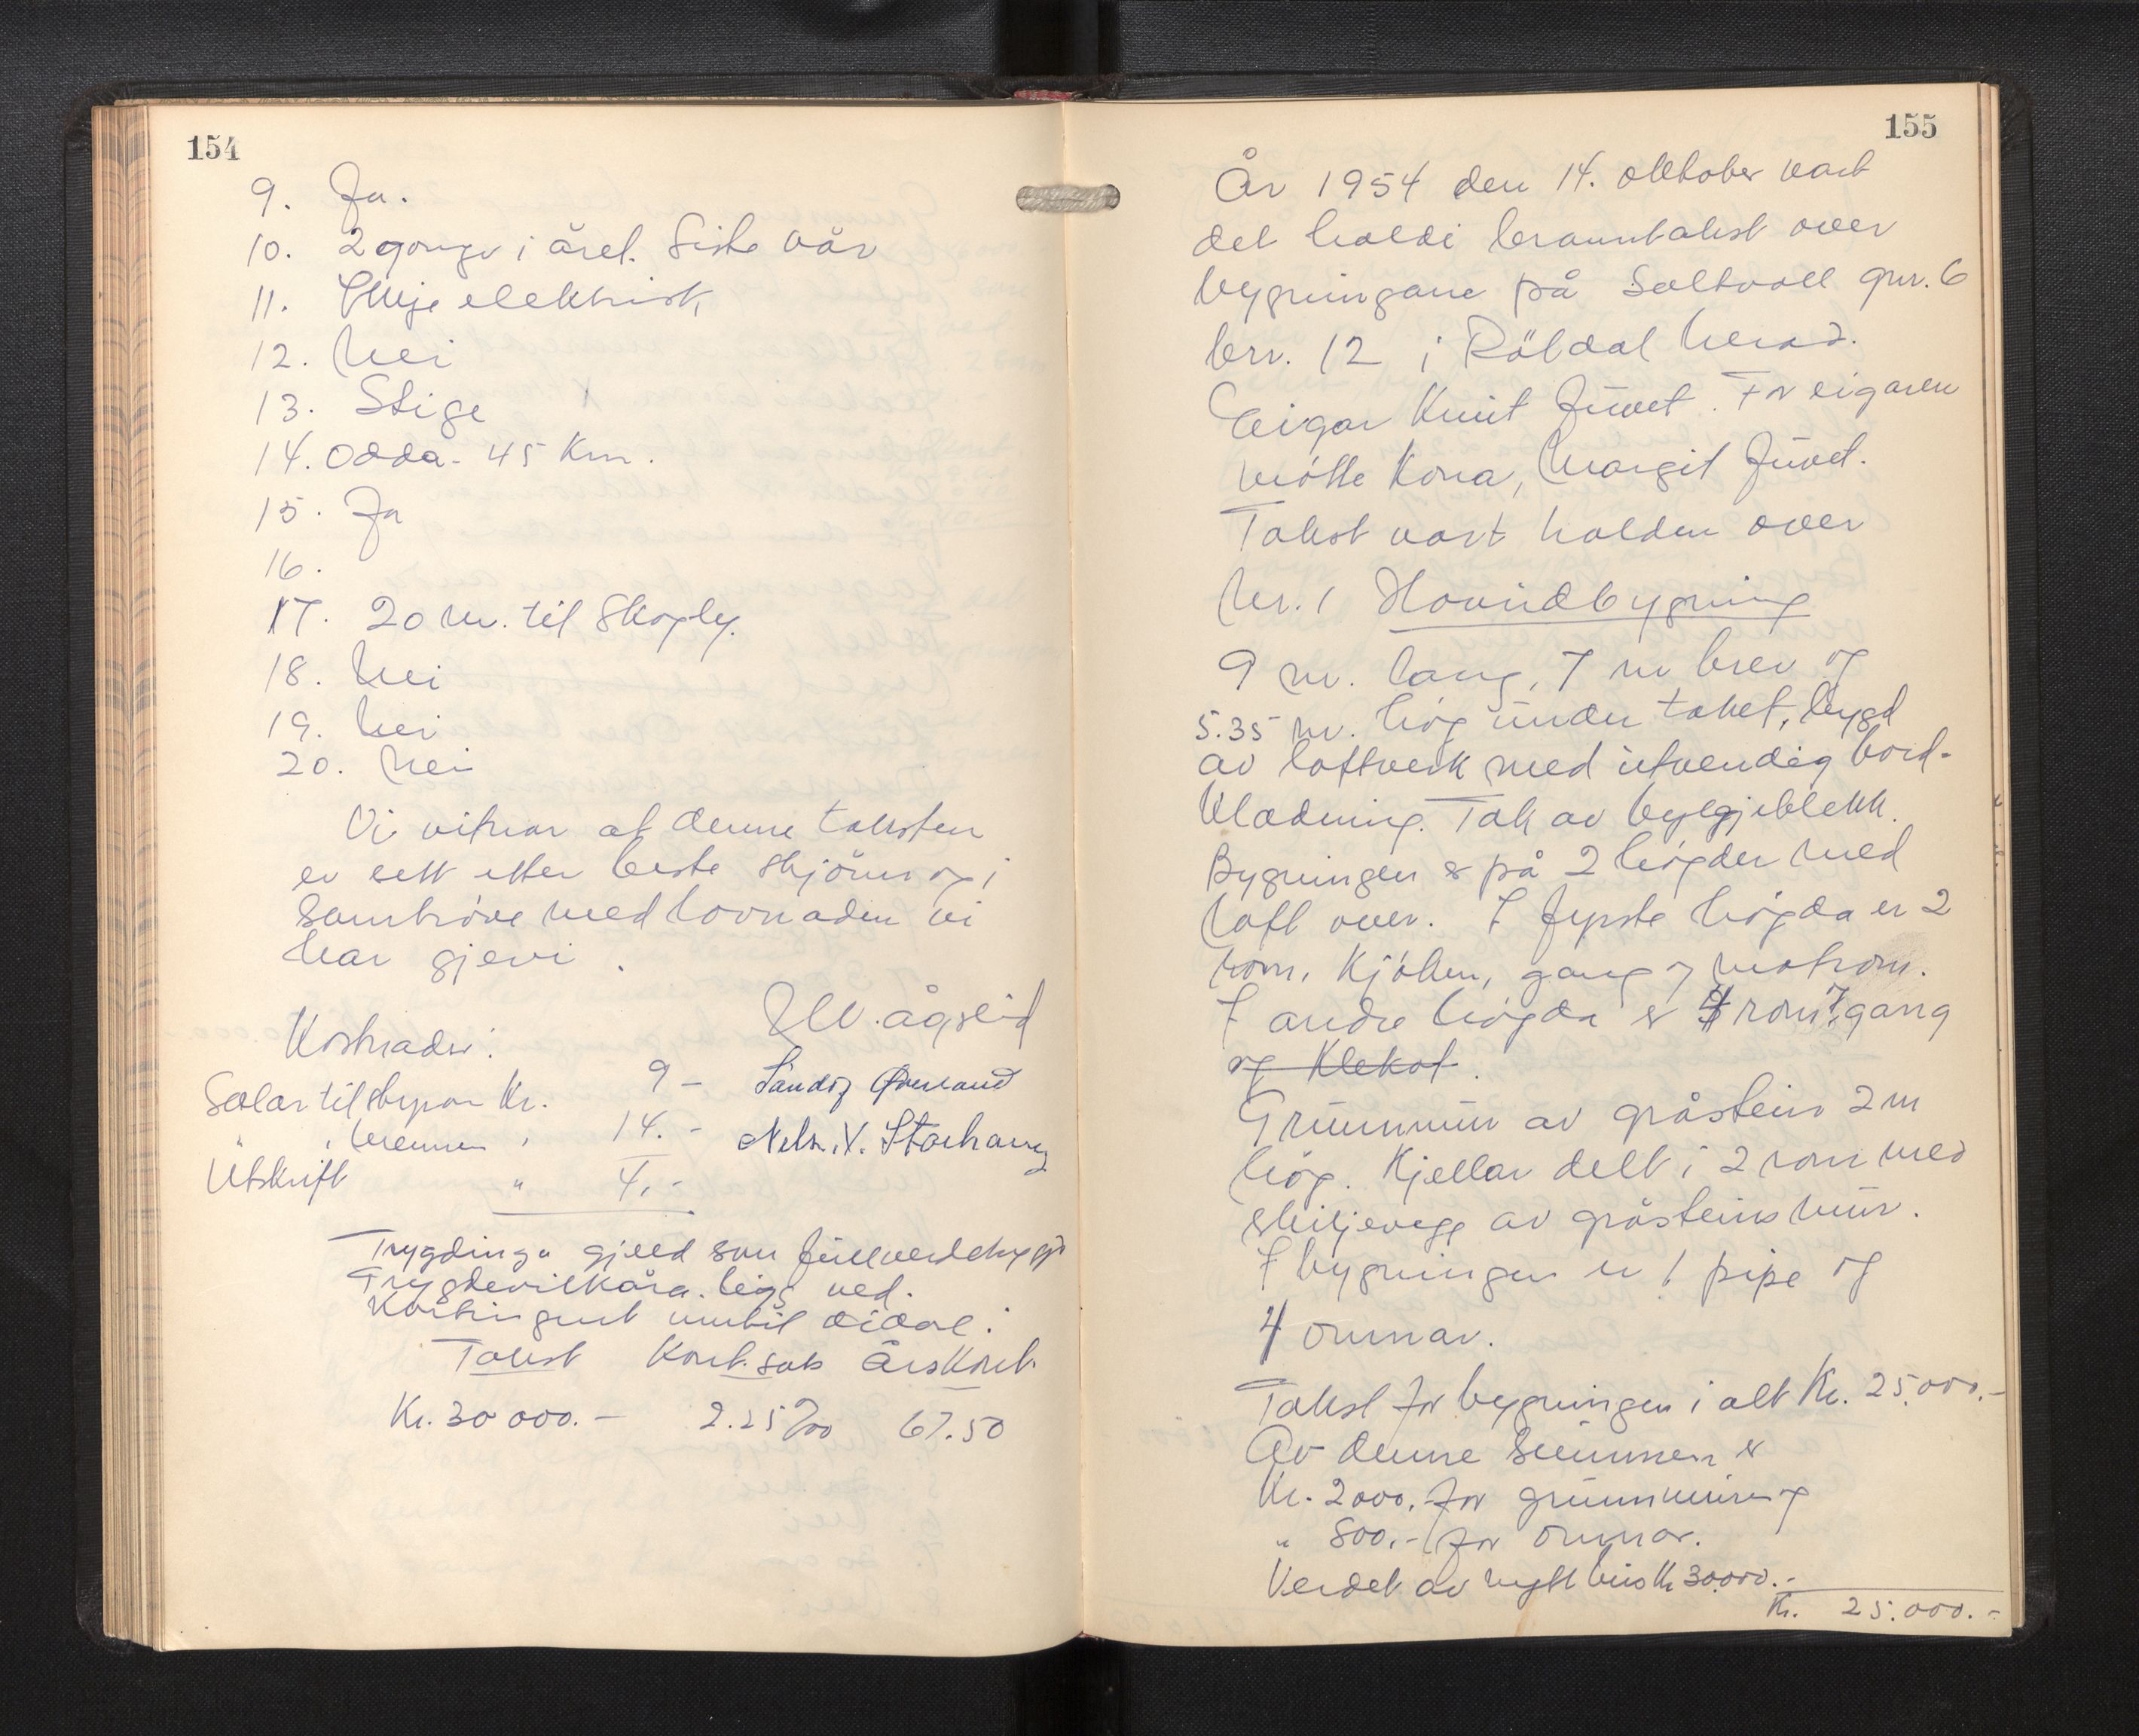 154
9. Ja.
10. 2 gonger i året. Siste vår
11. Ikkje elektrisk
12. Nei
13. Stige
14. Odda - 45 Km.
15. Ja
16.
17. 20 m. til Skogly.
18. Nei
19. Nei
20. Nei
Vi vitnar at denne taksten
er sett etter beste skjönn og i
samhöve med lovnaden vi
har gjevi.
Kostnader:
Salar til skjønar Kr. 9 -
" " " 14. -
Utskrift " 4. -
Trygdinga gjeld som fullverdetrygd
Trygdevilkåra. legg ved.
Kontingent umtil vidare:
Takst Kont.sats ÅrsKont.
Kr. 30 000. - 2.25 ‰ 67.50
155
År 1954 den 14. oktober vart
det haldi branntakst over
bygningane på Saltvoll gnr. 6
bnr. 12 i Röldal herad.
Eigar Knut Juvet. For eigaren
mötte Kona, Margit Juvet.
Takst vart halden over
Nr. 1 Hovudbygning
9 m. lang, 7 m brei og
5.35 m. hög under taket, bygd
av laftverk med utvendig bord-
Klædning. Tak av bylgjeblekk.
Bygningen er på 2 högder med
loft over. I fyrste högda er 2
rom, Kjöken, gang og matrom.
I andre högda er 4 rom og gang
og Klekot.
Grunnmur av gråstein 2 m
hög. Kjellar delt i 2 rom med
skiljevegg av gråsteinsmur.
I bygningen er 1 pipe og
4 omnar.
Takst for bygningen i alt Kr. 25.000.-
Av denne summen er
Kr. 2000.- for grunnmuren og
" 800.- for omnar.
Verdet av nytt hus Kr 30.000.-
Kr. 25.000.-